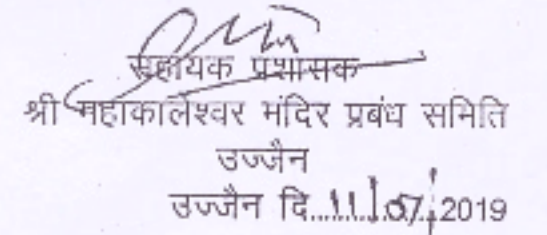 सहायक प्रशासक
श्री महाकालेश्वर मंदिर प्रबंध समिति
उज्जैन
उज्जैन दि.....11/07/2019